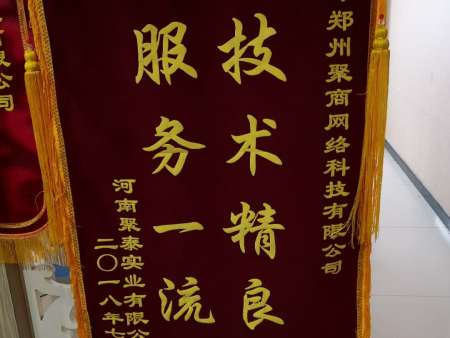 郑州聚商网络科技有限公司
技术精良
服务一流
河南聚泰实业有限公
二〇一八年七
限公司